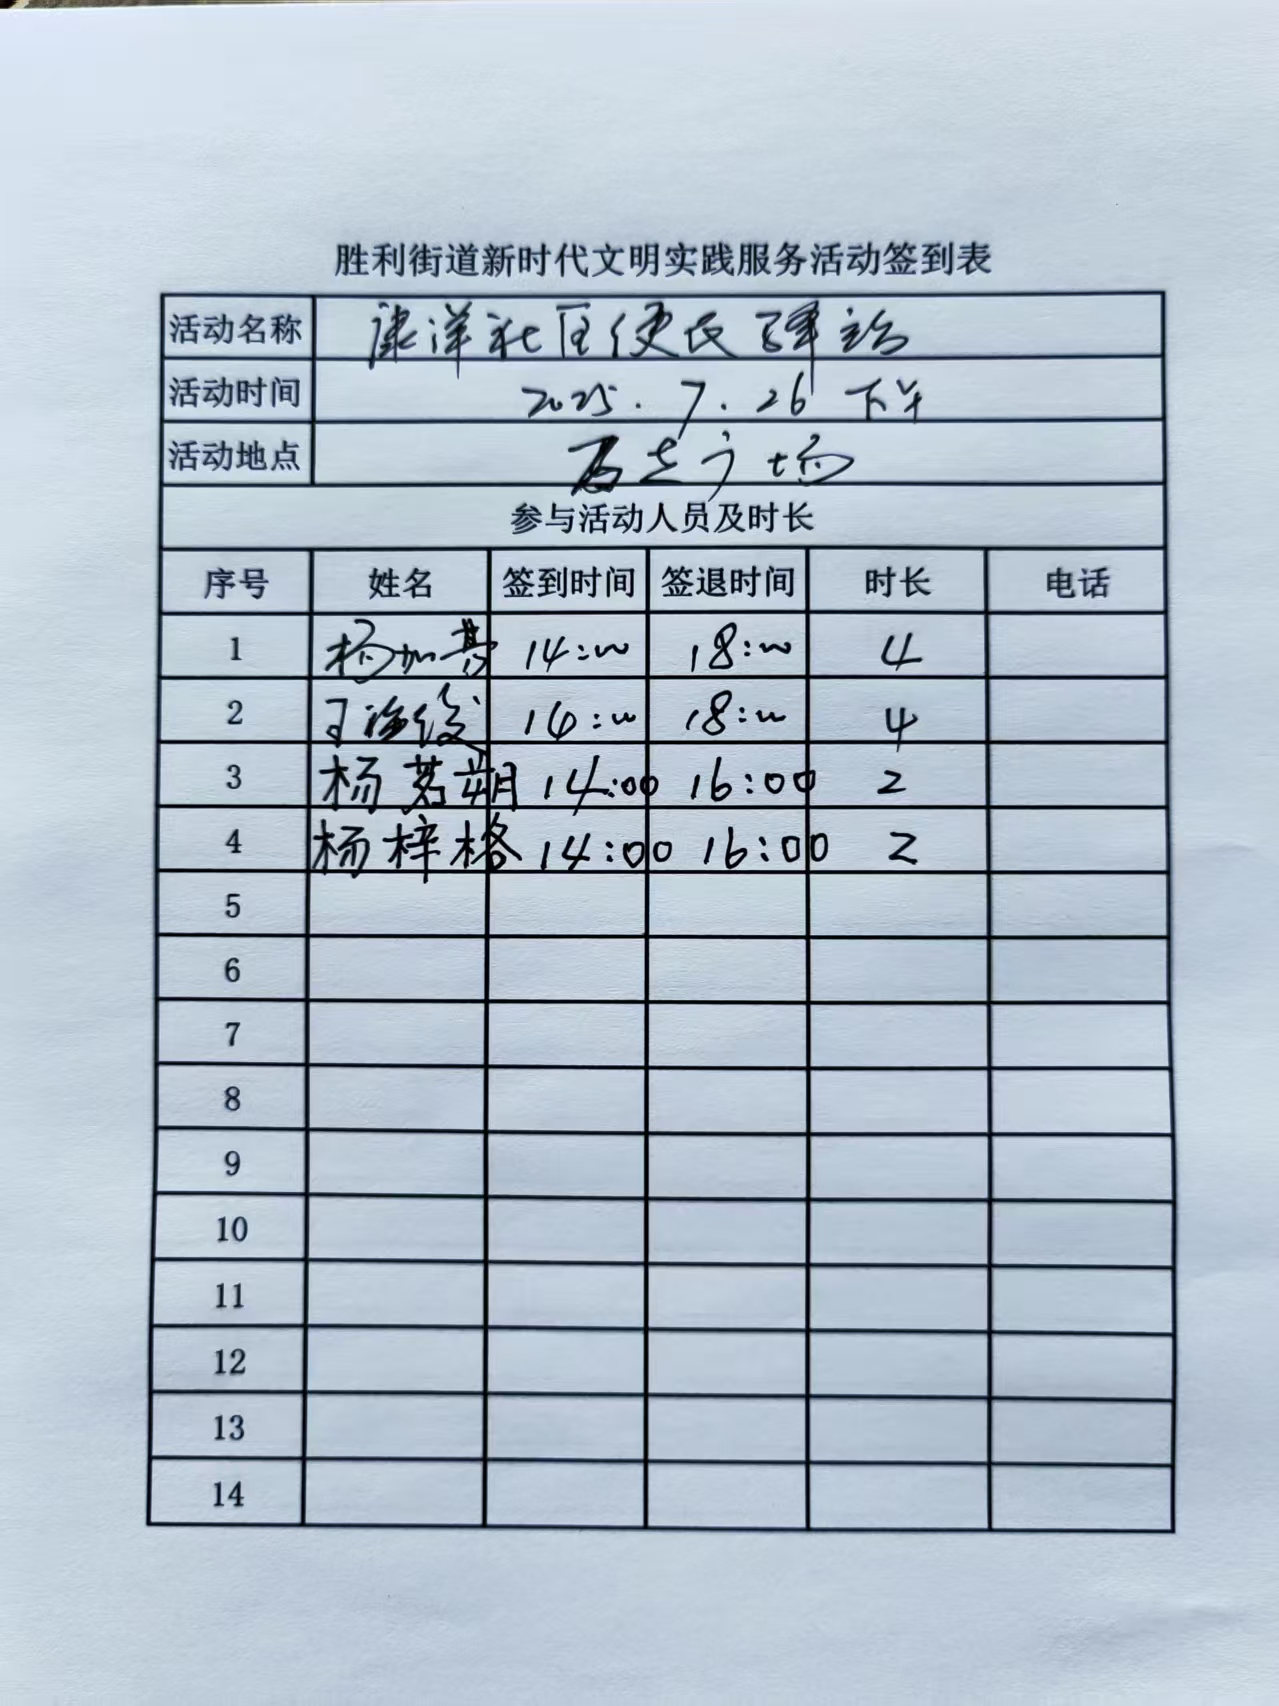 胜利街道新时代文明实践服务活动签到表
活动名称 康洋社区便民驿站
活动时间 2025.7.26 下午
活动地点 广场
参与活动人员及时长
序号 姓名 签到时间 签退时间 时长 电话
1 杨加 14:00 18:00 4
2 14:00 18:00 4
3 杨茗朔 14:00 16:00 2
4 杨梓格 14:00 16:00 2
5
6
7
8
9
10
11
12
13
14